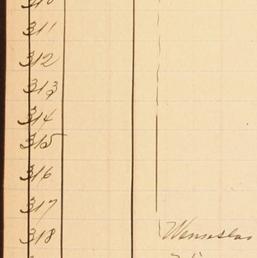 310
311
312
313
314
315
316
317
318 Wenseslao